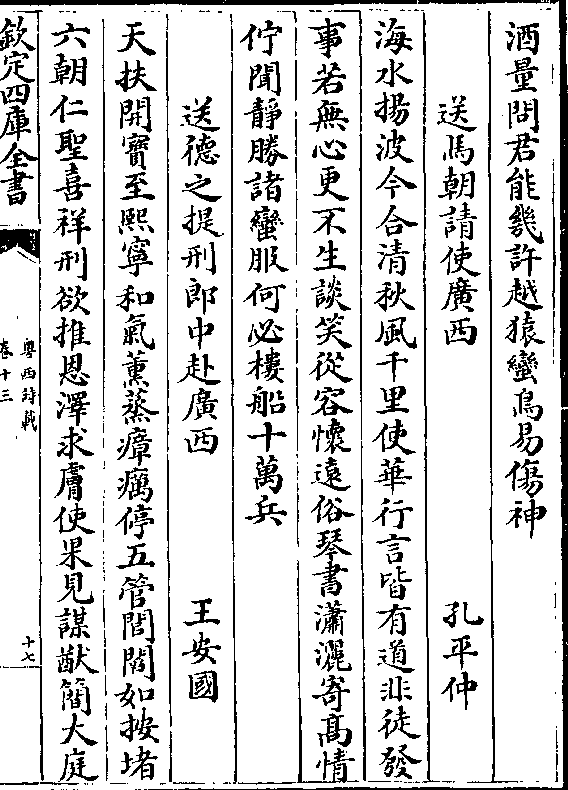 酒量問君能幾許越猿蠻鳥易傷神
送馬朝請使廣西　孔平仲
海水揚波今合清秋風千里使華行言皆有道非徒發
事若無心更不生談笑從容懷遠俗琴書瀟灑寄高情
佇聞靜勝諸蠻服何必樓船十萬兵
送德之提刑郎中赴廣西　王安國
天扶開寶至熙寧和氣薰蒸瘴癘停五管閭閻如按堵
六朝仁聖喜祥刑欲推恩澤求膚使果見謀猷簡大庭
欽定四庫全書
粵西詩載
卷十三
十七